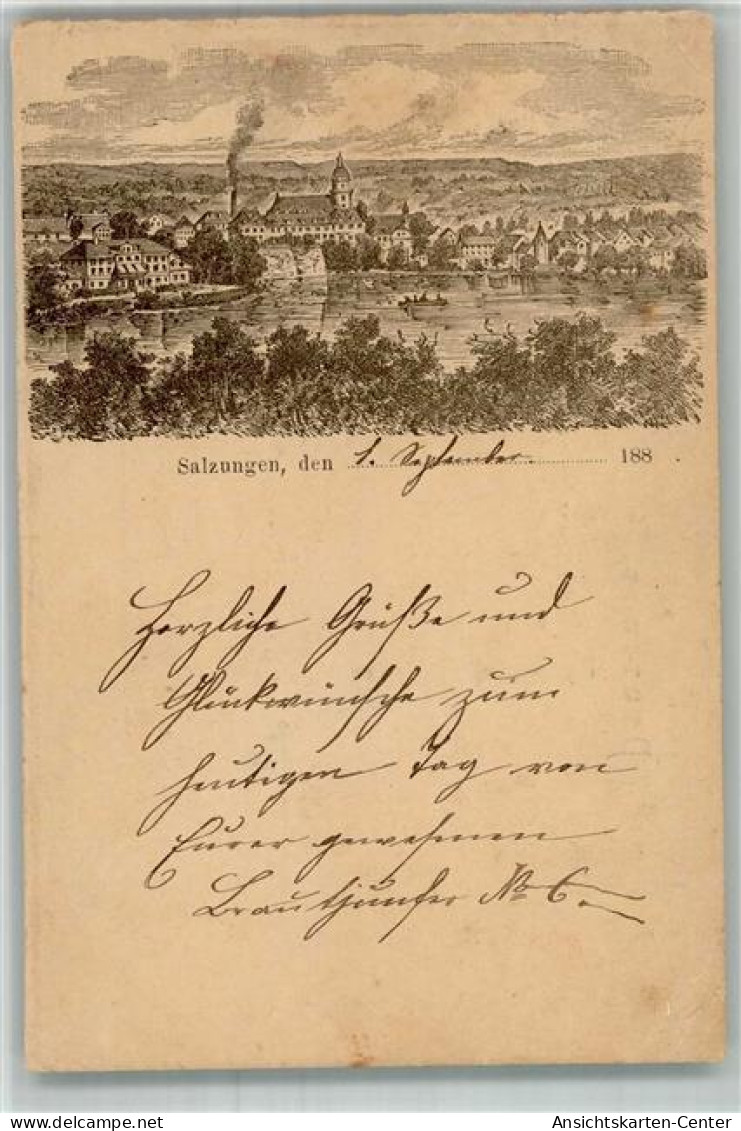 Salzungen, den 1. September. 188
Herzliche Grüße und
Glückwünsche zum
heutigen Tag von
Eurer gewesenen
Brautjunfer No 6.
www.delcampe.net
Ansichtskarten-Center